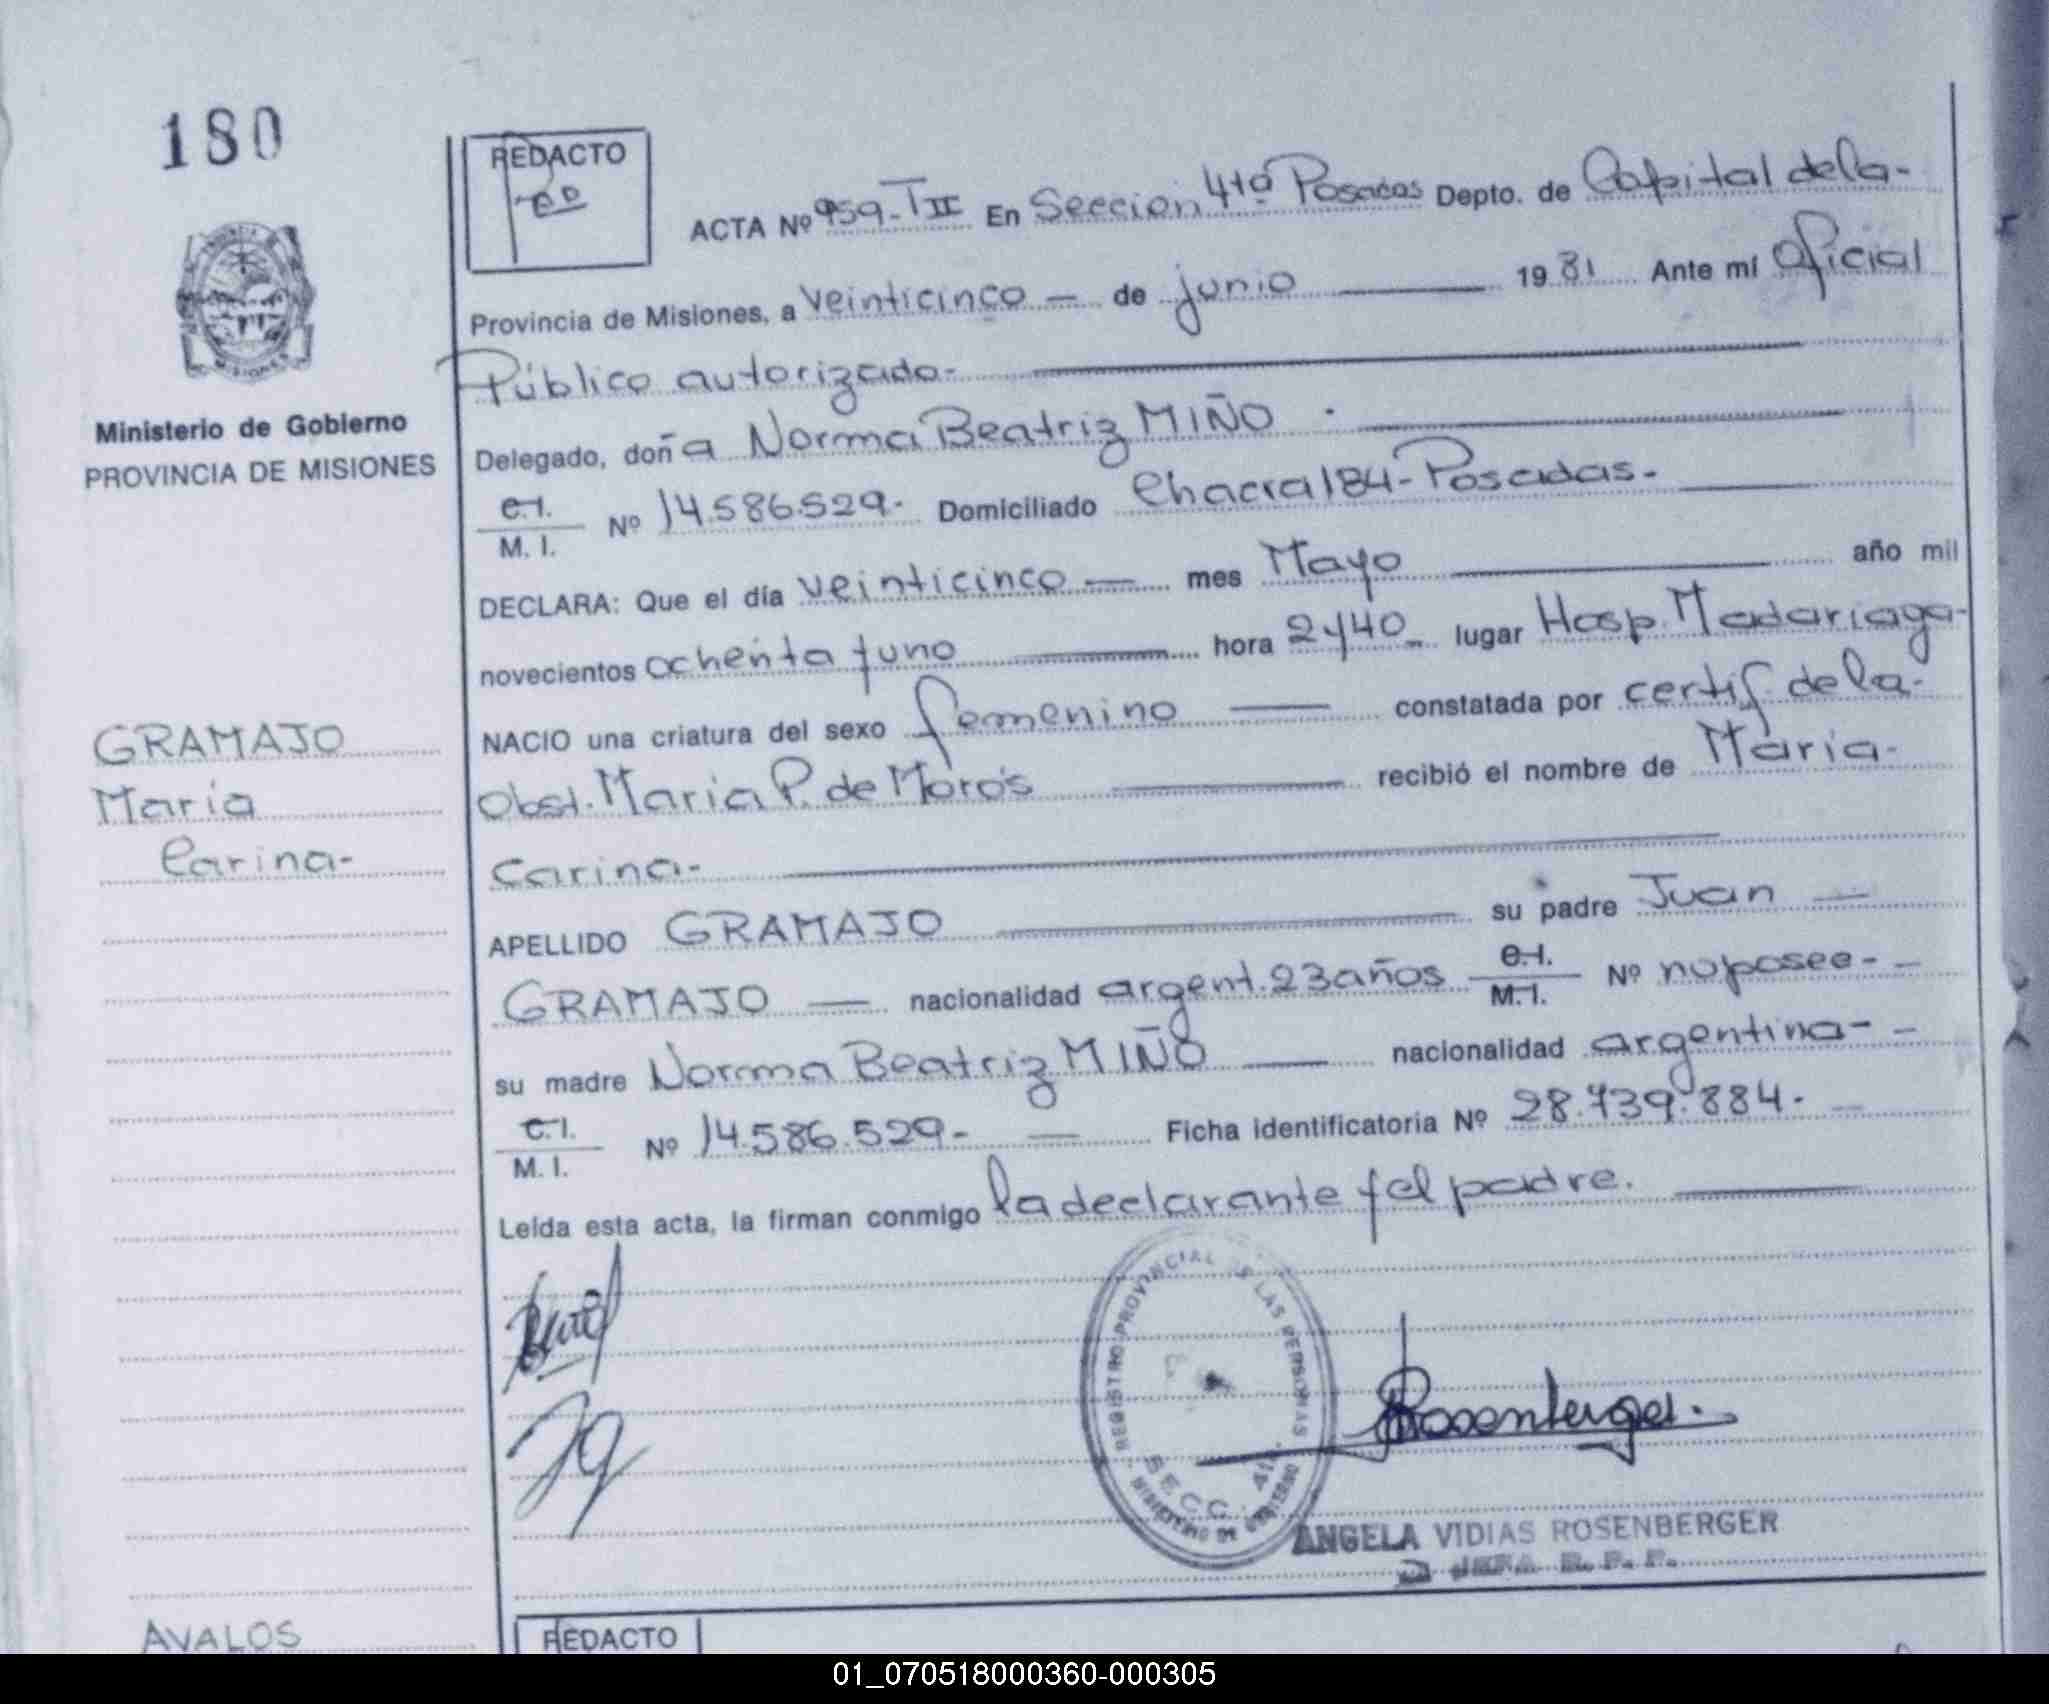 180
REDACTO
ACTA Nº 959-TII En Sección 4ta Posadas Depto. de Capital dela-
Provincia de Misiones, a veinticinco — de junio — 1981 Ante mí Oficial
Público autorizado-
Ministerio de Gobierno
PROVINCIA DE MISIONES
Delegado, doña Norma Beatriz MIÑO
C.I.
M. I. Nº 14.586.529- Domiciliado Chacra 184-Posadas-
DECLARA: Que el día veinticinco — mes Mayo — año mil
novecientos ochenta y uno — hora lugar Hosp. Madariaga-
NACIO una criatura del sexo femenino — constatada por certif. dela-
Obst. Maria P. de Moros — recibió el nombre de Maria-
Carina-
GRAMAJO
María
Carina-
APELLIDO GRAMAJO — su padre Juan —
GRAMAJO — nacionalidad argent. 23 años C.I.
M.I. Nº no posee- -
su madre Norma Beatriz MIÑO — nacionalidad argentina- -
C.I.
M. I. Nº 14.586.529- — Ficha identificatoria Nº 28.739.884.
Leída esta acta, la firman conmigo la declarante y el padre.
REGISTRO PROVINCIAL DE LAS PERSONAS
SECC. 4ta
MINISTERIO DE GOBIERNO
Rosenberger.
ANGELA VIDIAS ROSENBERGER
JEFA R. P. P.
AVALOS
REDACTO
01_070518000360-000305